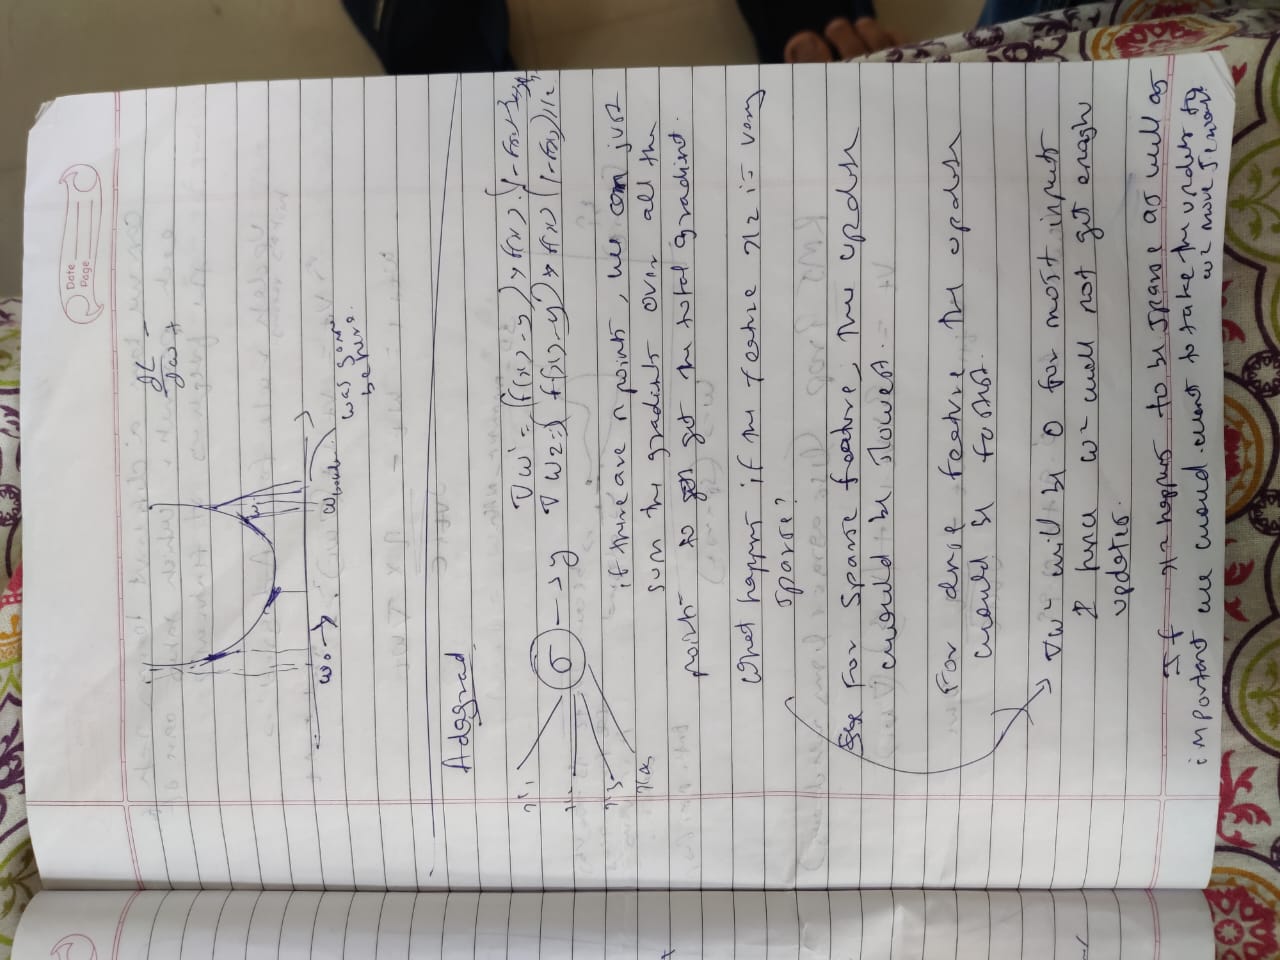 Date
Page
∂L -
∂w +
w0 →
w1
was gonna
be here.
Adagrad
x1
x2
x3
x4
σ → y
∇w1 = (f(x) - y) * f(x) . (1 - f(x)) *
∇w2 = ( f(x) - y) * f(x) (1 - f(x)) x2
if there are n points, we can just
sum the gradients over all the
points to get the total gradient.
What happens if the feature x2 is very
sparse?
For sparse feature, the update
would be slowest.
For dense feature the update
would be fastest.
∇w2 will be 0 for most inputs
& hence w2 will not get enough
updates.
If x2 happens to be sparse as well as
important we would want to take the updates to
w2 more